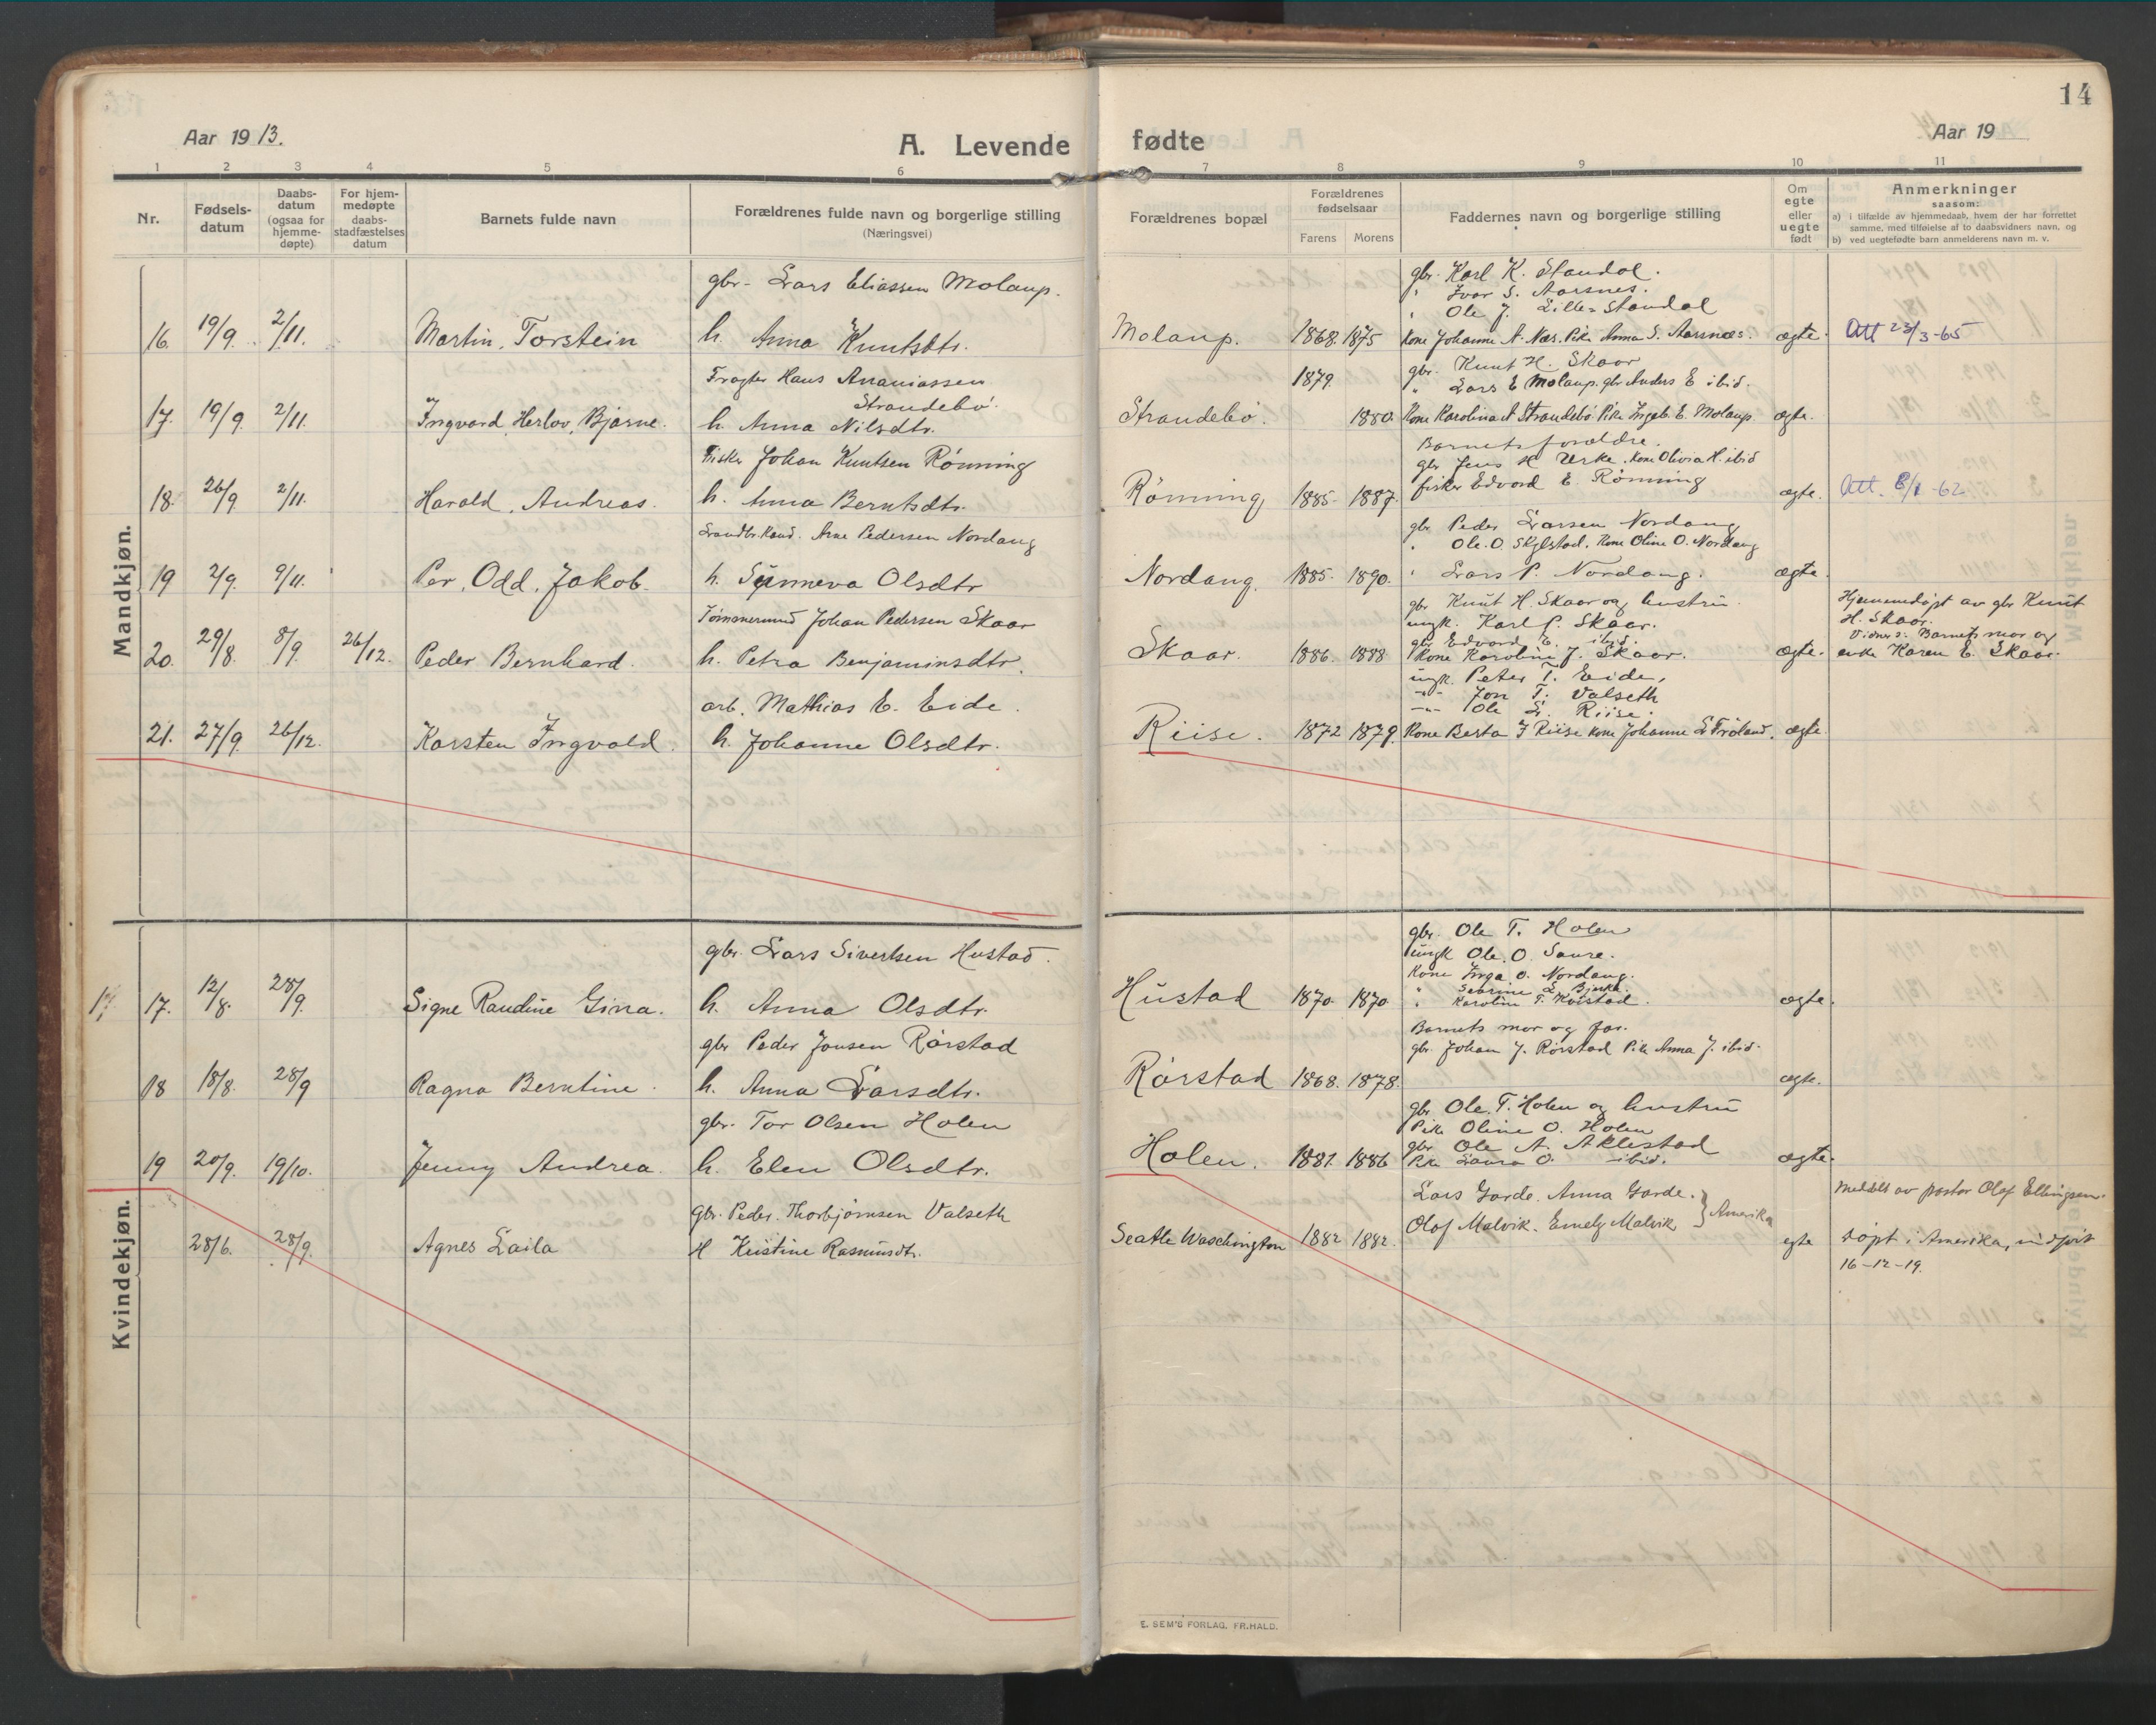 14
Aar 1913.
A. Levende fødte
Aar 19
1 2 3 4 5 6 7 8 9 10 11
Nr.
Fødsels-
datum
Daabs-
datum
(ogsaa for
hjemme-
døpte)
For hjem-
medøpte
daabs-
stadfæstelses
datum
Barnets fulde navn
Forældrenes fulde navn og borgerlige stilling
(Næringsvei)
Forældrenes bopæl
Forældrenes
fødselsaar
Farens Morens
Faddernes navn og borgerlige stilling
Om
egte
eller
uegte
født
Anmerkninger
saasom:
a) i tilfælde av hjemmedaab, hvem der har forrettet
samme, med tilføielse af to daabsvidners navn, og
b) ved uegtefødte barn anmelderens navn m. v.
Mandkjøn.
16. 19/9. 2/11. Martin, Torstein
gbr. Lars Eliassen Molaup.
h. Anna Knutsdtr.
Molaup. 1868. 1875
gbr. Karl K. Standal.
" Ivar S. Aarsnes.
" Ole J. Lille-Standal
Kone Johanne A. Nes. Pike Anna S. Aarsnes.
ægte. Att 23/3-65
17. 19/9. 2/11. Ingvard, Herlov, Bjarne.
Fragter Hans Ananiassen
Strandebø.
h. Anna Nilsdtr.
Strandebø. 1879. 1880.
gbr. Knut H. Skaar
" Lars E Molaup. gbr Anders E ibid.
Kone Karolina A Strandebø Pike Ingeb. E. Molaup.
ægte.
18. 26/9. 2/11. Harald, Andreas.
Fisker Johan Knutsen Rønning
h. Anna Berntsdtr.
Rønning 1885. 1887.
Barnets forældre.
gbr. Jens K Urke. Kone Olivia H. ibid
fisker Edvard E Rønning
ægte. Att. 8/1-62
19 2/9. 9/11. Per, Odd, Jakob.
Landbr. Kand. Arne Pedersen Nordang
h. Synneva Olsdtr
Nordang. 1885. 1890.
gbr. Peder Larsen Nordang
" Ole. O. Skjelstad. Kone Oline O. Nordang
" Lars P. Nordang.
ægte.
20. 29/8. 8/9. 26/12. Peder Bernhard.
Tømmermand Johan Pedersen Skaar
h. Petra Benjaminsdtr.
Skaar. 1886. 1888
gbr Knut H. Skaar og hustru.
ungk. Karl P. Skaar.
gbr Edvard E. ibid.
Kone Karoline J. Skaar.
ægte.
Hjemmedøpt av gbr Knut
H. Skaar.
Vidner: Barnets mor og
enke Karen E. Skaar.
21. 27/9. 26/12. Karsten Ingvald.
arb. Mathias E. Eide.
h. Johanne Olsdtr.
Riise. 1872 1879.
ungk. Peter T. Eide,
-"- Jon T. Valseth
-"- Ole L. Riise.
Kone Berta J Riise Kone Johanne L Friland.
ægte.
Kvindekjøn.
17. 17. 12/8. 28/9. Signe Raudine Gina.
gbr. Lars Sivertsen Hustad.
h. Anna Olsdtr.
Hustad 1870. 1870
gbr. Ole T. Holen
ungk Ole. O. Saure.
Kone Inga O. Nordang.
" Severine L. Bjerke.
" Karoline T. Kvistad.
ægte.
18 18/8. 28/9 Ragna Berntine.
gbr Peder Jonsen Rørstad
h. Anna Larsdtr.
Rørstad 1868. 1878.
Barnets mor og far.
gbr. Johan J. Rørstad Pike Anna J. ibid.
ægte.
19 20/9. 19/10. Jenny Andrea.
gbr. Tor Olsen Holen
h. Elen Olsdtr.
Holen. 1881. 1886
gbr Ole. T. Holen og hustru
Pike Oline O. Holen
gbr Ole A. Aklestad
Pike Laura O. ibid.
ægte.
28/6. 28/9. Agnes Laila
gbr. Peder Thorbjørnsen Valseth
H Kristine Rasmusdtr.
Seatle Waschington 1882 1882.
Lars Garde. Anna Garde.
Olof Malvik. Emely Malvik } Amerika
egte
Meddelt av pastor Olof Ellingsen.
døpt i Amerika, indført
16-12-19.
E. SEM'S FORLAG, FR.HALD.